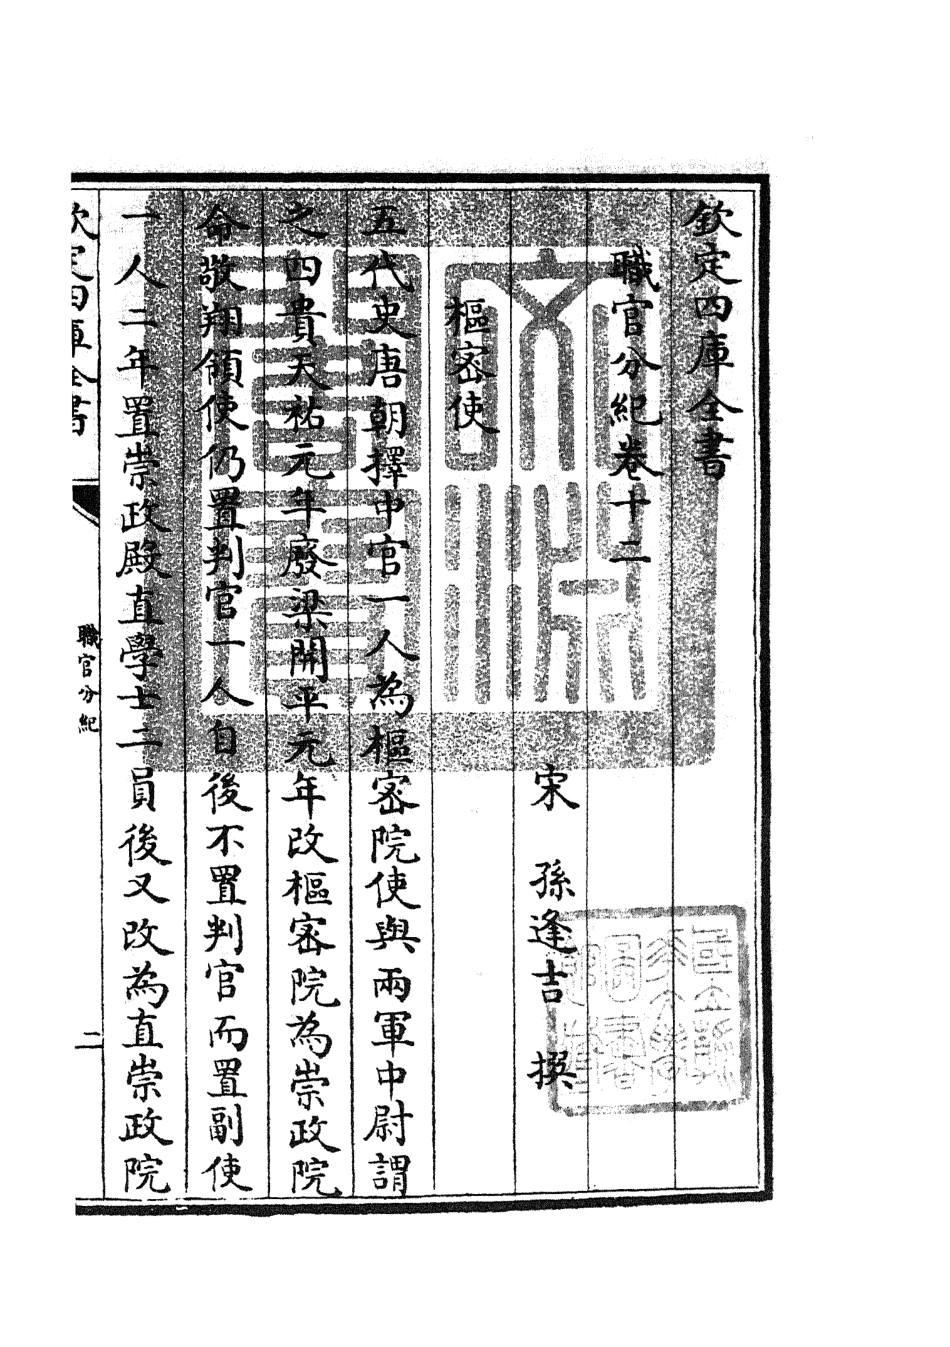 欽定四庫全書
職官分紀卷十二
宋 孫逢吉 撰
樞密使
五代史唐朝擇中官一人為樞密院使與兩軍中尉謂
之四貴天祐元年廢梁開平元年改樞密院為崇政院
命敬翔領使仍置判官一人自後不置判官而置副使
一人二年置崇政殿直學士二員後又改為直崇政院
欽定四庫全書
職官分紀
二
文淵閣寶